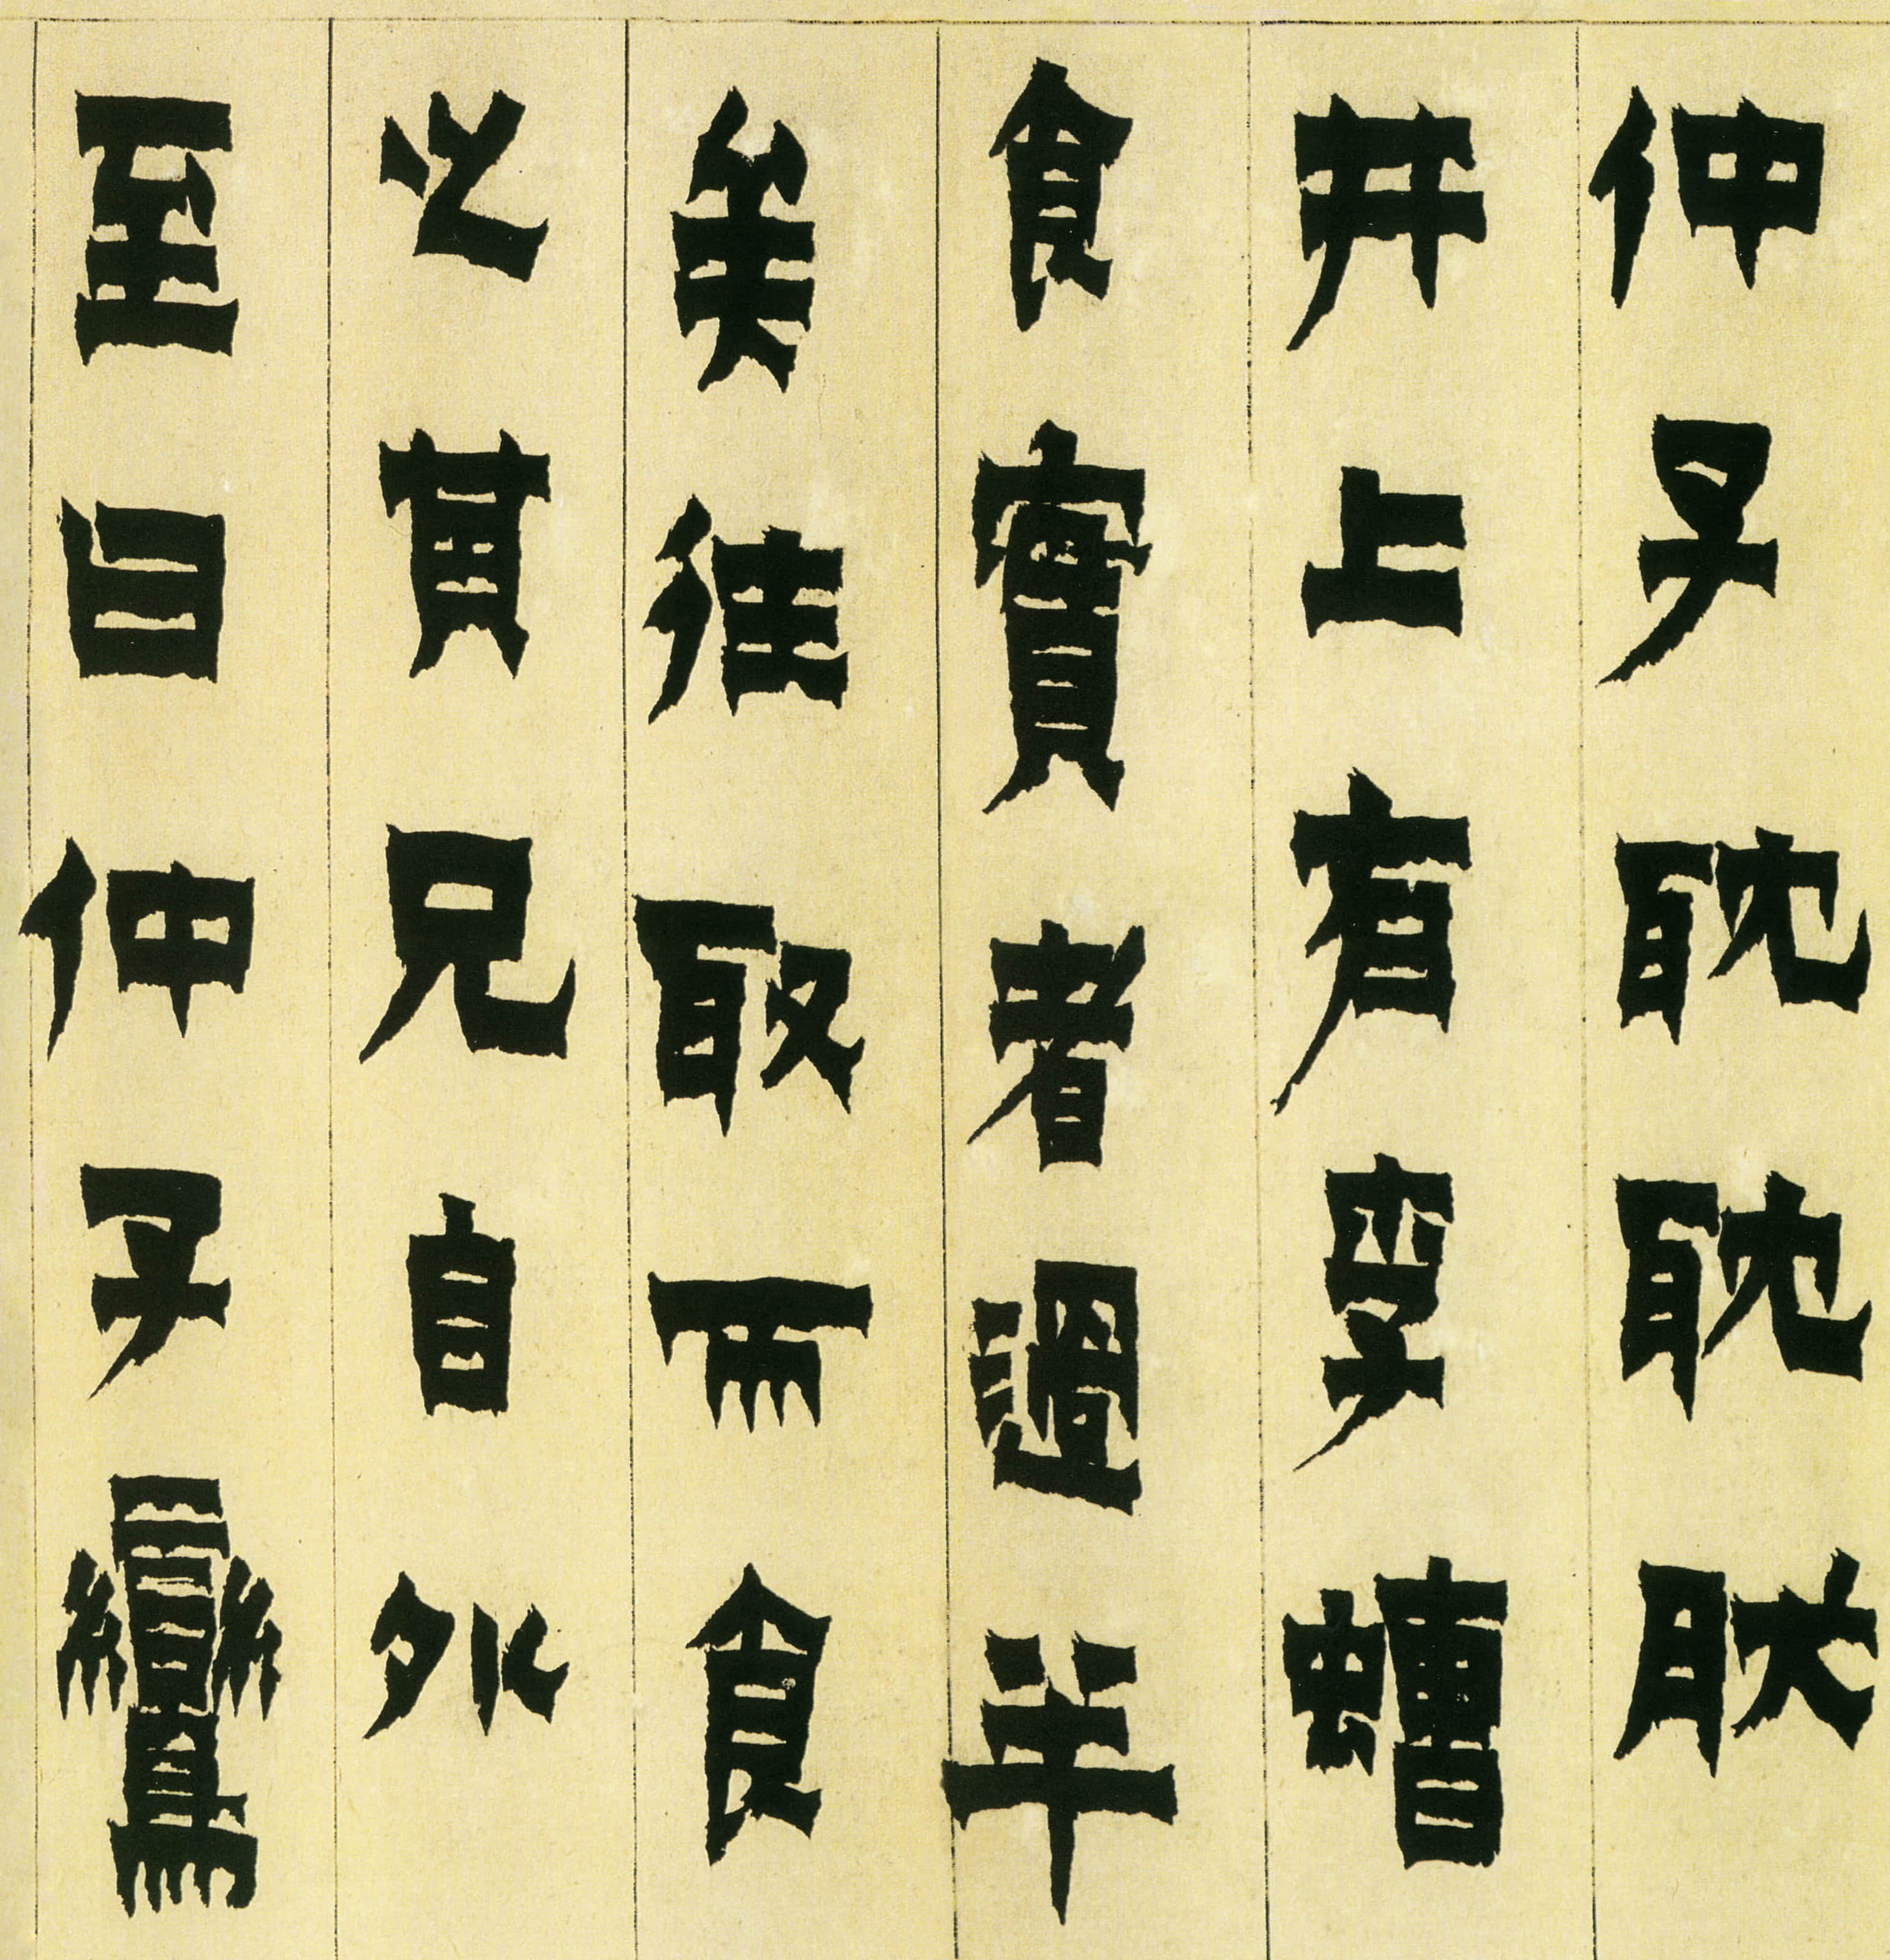 仲子耽耽肰
井上有李螬
食實者過半
矣往取而食
之其兄自外
至曰仲子